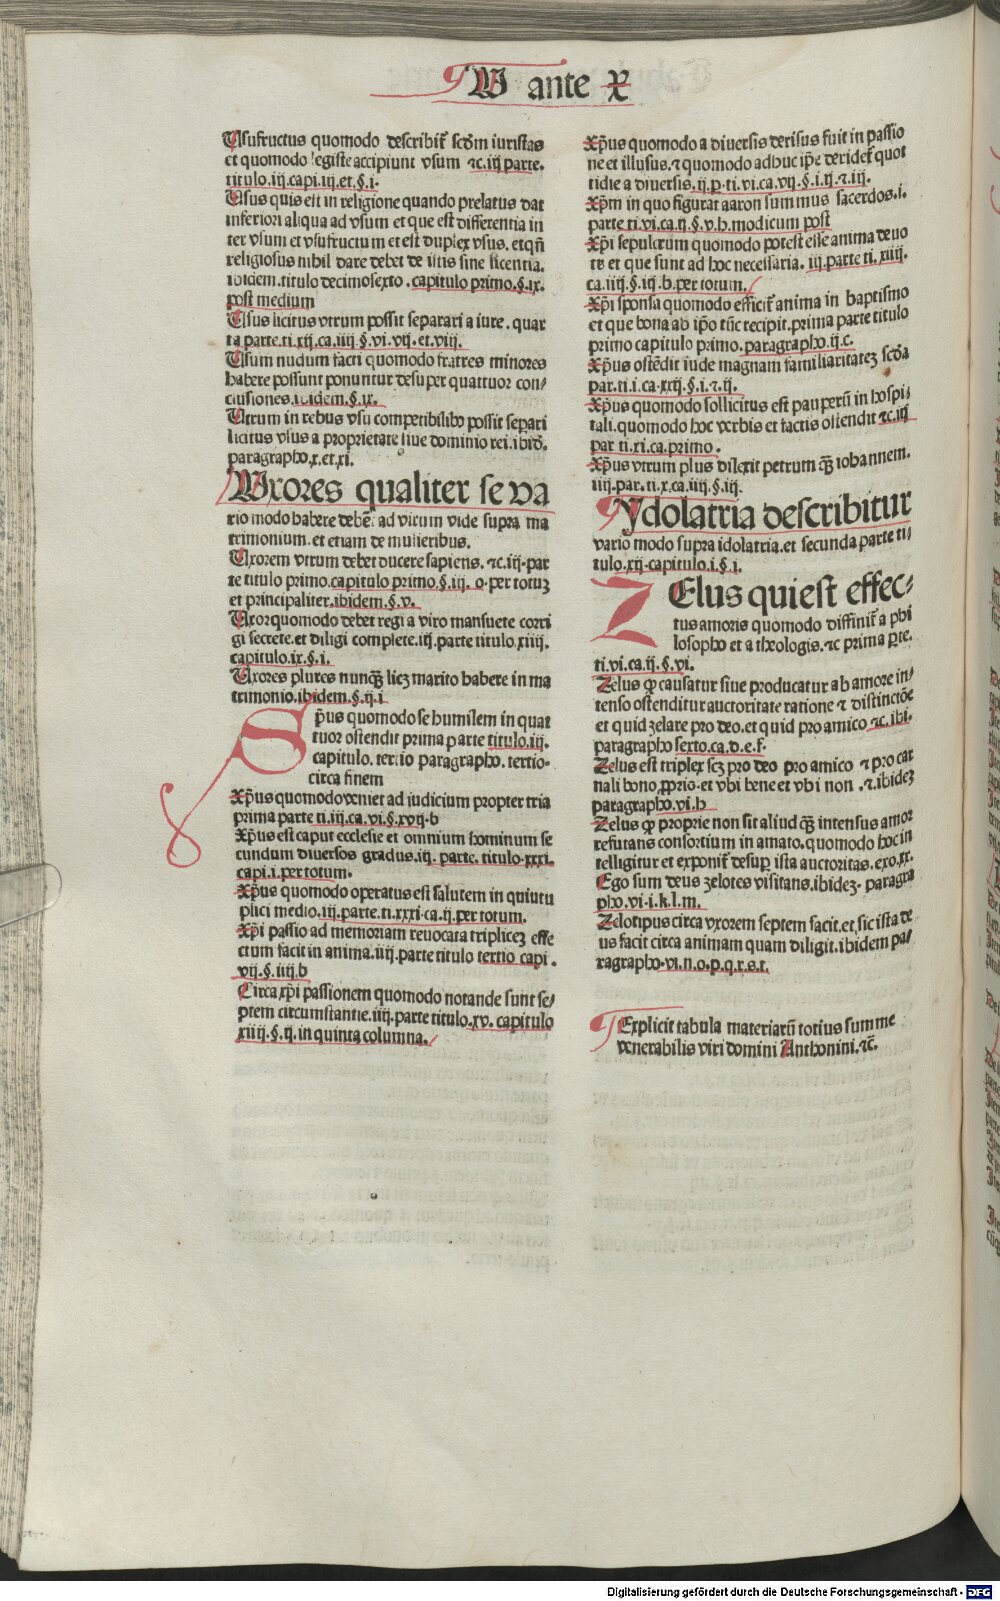 W ante X
Ususfructus quomodo describit̃ scd̃m iuristas
et quomodo legiste accipiunt vsum ⁊c.iij parte.
titulo.iij.capi.iij.et.§.i.
Usus quis est in religione quando prelatus dat
inferiori aliqua ad vsum et que est differentia in
ter vsum et vsufructum et est duplex vsus. etqñ
religiosus nihil dare debet de istis sine licentia.
ibidem.titulo decimosexto.capitulo primo.§.ix.
post medium
Usus licitus vtrum possit separari a iure.quar
ta parte.ti.xij.ca.iiij.§.vi.vij.et.viij.
Usum nudum facti quomodo fratres minores
habere possunt ponuntur desuper quattuor con⸗
clusiones.ibidem.§.ix.
Utrum in rebus vsu comperibilibꝰ possit separi
licitus vsus a proprietate siue dominio rei.ibid̃.
paragrapho.x.et.xi.
Wxores qualiter se va
rio modo habere debẽt ad virum vide supra ma
trimonium.et etiam de mulieribus.
Uxorem vtrum debet ducere sapiens.⁊c.iij.par
te titulo primo.capitulo primo.§.iij.o.per totuꝫ
et principaliter.ibidem.§.v.
Uxor quomodo debet regi a viro mansuete corri
gi secrete.et diligi complete.iij.parte titulo.xiiij.
capitulo.ix.§.i.
Uxores plures nunqꝫ licꝫ marito habere in ma
trimonio.ibidem.§.ij.i
p̃us quomodo se humilem in quat
tuor ostendit prima parte titulo.iij.
capitulo.tertio paragrapho.tertio.
circa finem
Xp̃us quomodo veniet ad iudicium propter tria
prima parte ti.iij.ca.vi.§.xvij.b
Xp̃us est caput ecclesie et omnium hominum se
cundum diuersos gradus.iij.parte.titulo.xxxi.
capi.i.per totum.
Xp̃us quomodo operatus est salutem in quintu
plici medio.iij.parte.ti.xxxi.ca.ij.per totum.
Xp̃i passio ad memoriam reuocata triplicẽ effe
ctum facit in anima.iiij.parte titulo tertio capi.
vij.§.iiij.b
Circa xp̃i passionem quomodo notande sunt se⸗
ptem circumstantie.iiij.parte titulo.xv.capitulo
xiiij.§.ij.in quinta columna.
Xp̃us quomodo a diuersis derisus fuit in passio
ne et illusus.⁊ quomodo adhuc ip̃e deridet̃ quot
tidie a diuersis.ij.p.ti.vi.ca.vij.§.i.ij.⁊.iij.
Xp̃m in quo figurat aaron summus sacerdos.i.
parte ti.vi.ca.ij.§.v.h.modicum post
Xp̃i sepulcrum quomodo potest esse anima deuo
te et que sunt ad hoc necessaria.iij.parte ti.xiiij.
ca.iiij.§.iij.b.per totum.
Xp̃i sponsa quomodo efficit̃ anima in baptismo
et que bona ab ip̃o tũc recipit.prima parte titulo
primo capitulo primo.paragrapho.ij.c.
Xp̃us ostẽdit iude magnam familiaritateꝫ scd̃a
par.ti.i.ca.xxij.§.i.⁊.ij.
Xp̃us quomodo sollicitus est pauperũ in hospi⸗
tali.quomodo hoc verbis et factis ostendit ⁊c.iij
par ti.xi.ca.primo.
Xp̃us vtrum plus dilexit petrum qꝫ iohannem.
iiij.par.ti.x.ca.iiij.§.iij.
Ydolatria describitur
vario modo supra idolatria.et secunda parte ti⸗
tulo.xij.capitulo.i.§.i.
ZElus qui est effec⸗
tus amoris quomodo diffinit̃ a phi
losopho et a theologis.⁊c prima p̱te.
ti.vi.ca.ij.§.vi.
Zelus ꝙ causatur siue producatur ab amore in⸗
tenso ostenditur auctoritate ratione ⁊ distinctiõe
et quid zelare pro deo.et quid pro amico ⁊c.ibi.
paragrapho sexto.ca.d.e.f.
Zelus est triplex scꝫ pro deo pro amico ⁊ pro car
nali bono ꝓprio.et vbi bene et vbi non.⁊.ibideꝫ
paragrapho.vi.h
Zelus ꝙ proprie non sit aliud qꝫ intensus amor
refutans consortium in amato.quomodo hoc in
telligitur et exponit̃ desup̱ ista auctoritas.exo.xx.
Ego sum deus zelotes visitans.ibideꝫ.paragra
pho.vi.i.k.l.m.
Zelotipus circa vxorem septem facit.et sic ista de
us facit circa animam quam diligit.ibidem pa⸗
ragrapho.vi.n.o.p.q.r.s.t.
Explicit tabula materiarũ totius summe
venerabilis viri domini Anthonini.⁊c̃.
Digitalisierung gefördert durch die Deutsche Forschungsgemeinschaft - DFG